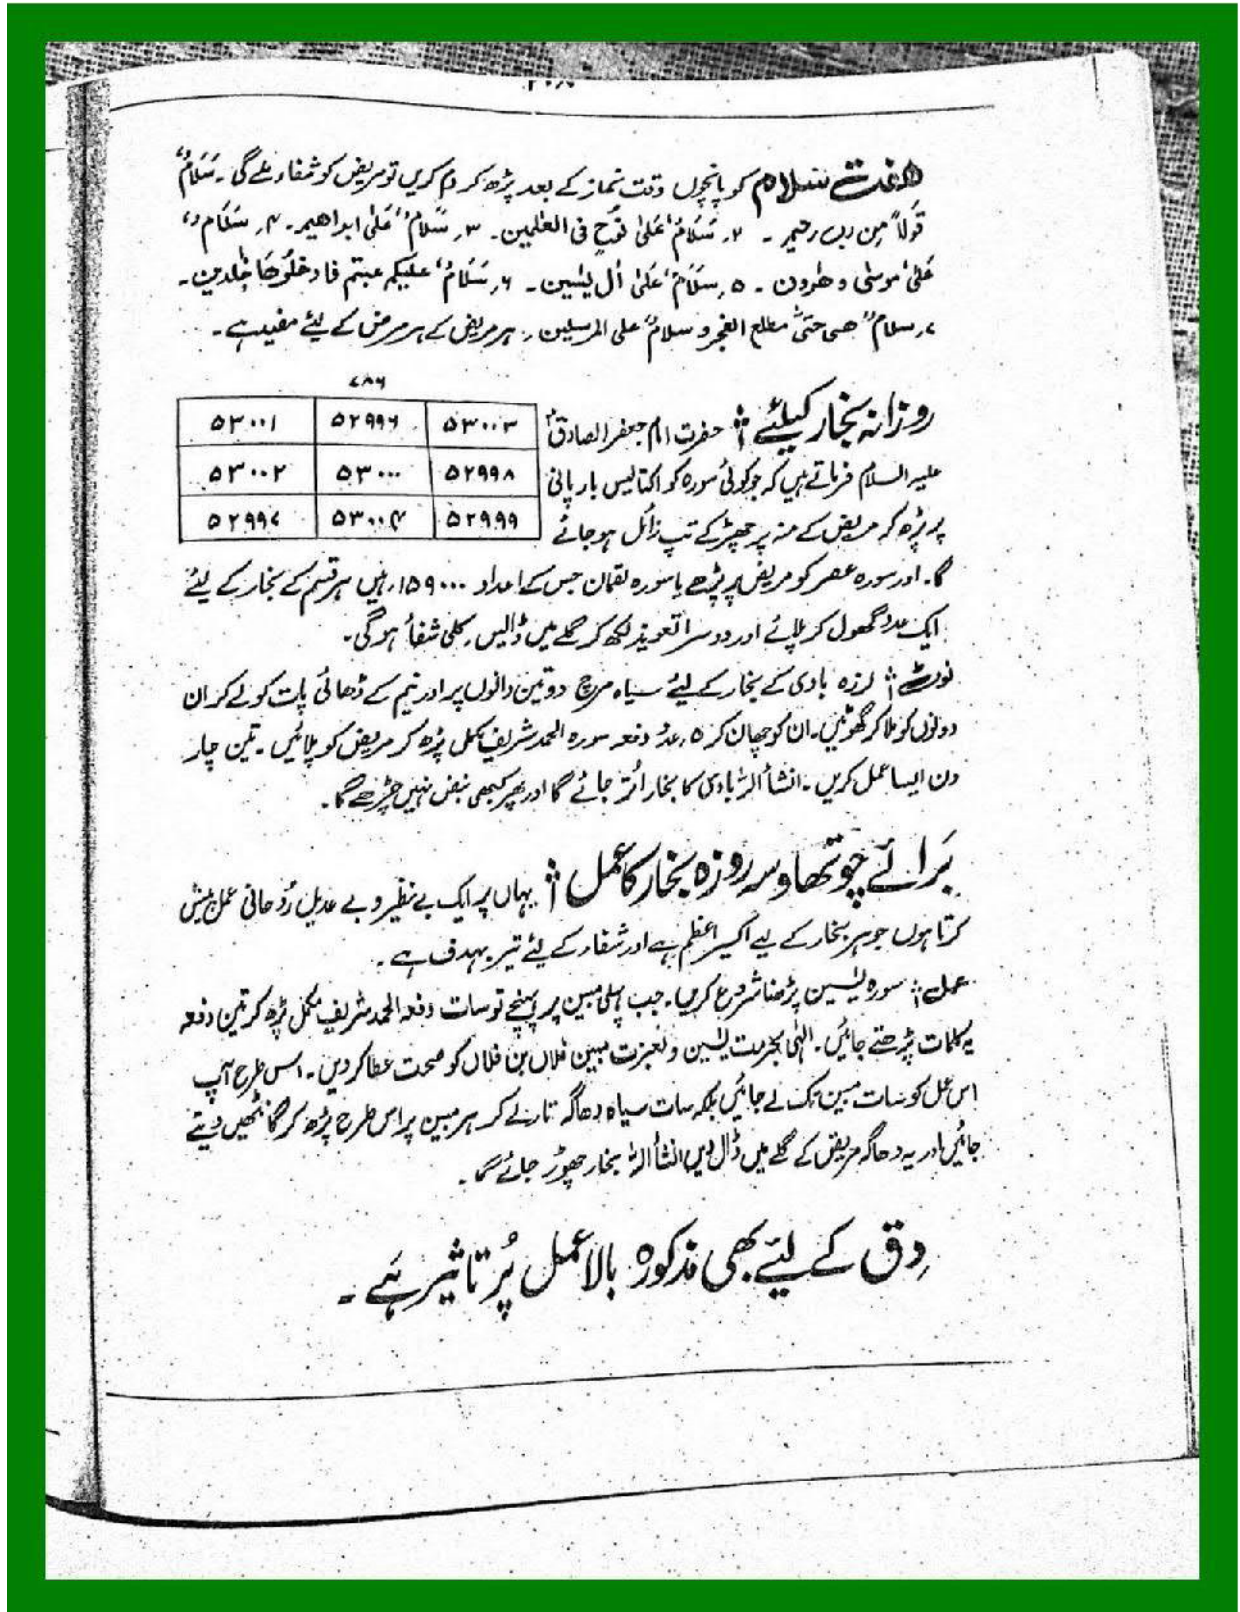 ہفت سلام کو پانچوں وقت نماز کے بعد پڑھ کر دم کریں تو مریض کو شفاء ملے گی۔ سَلَامٌ
قَولاً مِن رب رحیم ۔ ۲؍ سَلَامٌ عَلیٰ نُوحٍ فی العٰلمین۔ ۳؍ سَلامٌ عَلیٰ ابراھیم۔ ۴؍ سَلَامٌ
عَلیٰ موسیٰ و ھٰرون ۔ ۵؍ سَلَامٌ عَلیٰ اٰل یٰسین۔ ۶؍ سَلَامٌ علیکم طبتم فادخلُوھَا خٰلدین۔
۷؍ سلامٌ ھی حتیّٰ مطلع الفجر و سلامٌ علی المرسلین ۔ ہر مریض کے ہر مرض کے لیئے مفید ہے۔
روزانہ بخار کیلئے :: حضرت امام جعفر الصادقؑ
علیہ السلام فرماتے ہیں کہ جو کوئی سورہ کو اکتالیس بار پانی
پر پڑھ کر مریض کے منہ پر چھڑکے تپ زائل ہو جائے
۷۸۶
۵۳۰۰۳ ۵۲۹۹۶ ۵۳۰۰۱
۵۲۹۹۸ ۵۳۰۰۰ ۵۳۰۰۲
۵۲۹۹۹ ۵۳۰۰۴ ۵۲۹۹۷
گا۔ اور سورہ عصر کو مریض پر پڑھے یا سورہ لقمان جس کے اعداد ۱۵۹۰۰۰؍ ہیں ہر قسم کے بخار کے لیئے
ایک عدد گھول کر پلائے اور دوسرا تعویذ لکھ کر گلے میں ڈالیں۔ کلی شفاُ ہو گی۔
نوٹ :: لرزہ بادی کے بخار کے لیئے سیاہ مرچ دو تین دانوں پر اور نیم کے ڈھائی پات کو لے کر ان
دونوں کو ملا کر گھوٹیں۔ ان کو چھان کر ۵؍ عدد دفعہ سورہ الحمد شریف مکمل پڑھ کر مریض کو پلائیں۔ تین چار
دن ایسا عمل کریں۔ انشأ اللہ بادی کا بخار اُتر جائے گا اور پھر کبھی نہیں چڑھے گا۔
بَرائے چوتھا و سہ روزہ بخار کا عمل :: یہاں پر ایک بے نظیر و بے عدیل رُوحانی عمل پیش
کرتا ہوں جو ہر بخار کے لیے اکسیر اعظم ہے اور شفاء کے لیئے تیر بہدف ہے۔
عمل :: سورہ یٰسین پڑھنا شروع کریں۔ جب پہلی مبین پر پہنچے تو سات دفعہ الحمد شریف مکمل پڑھ کر تین دفعہ
یہ کلمات پڑھتے جائیں۔ الٰہی بحرمت یٰسین و بعزت مبین فلاں بن فلاں کو صحت عطا کر دیں۔ اس طرح آپ
اس عمل کو سات مبین تک لے جائیں بلکہ سات سیاہ دھاگہ تار لے کر ہر مبین پر اس طرح پڑھ کر گانٹھیں دیتے
جائیں اور یہ دھاگہ مریض کے گلے میں ڈال دیں انشأ اللہ بخار چھوڑ جائے گا۔
دِق کے لیئے بھی مذکورہ بالا عمل پُر تاثیر ہَے۔